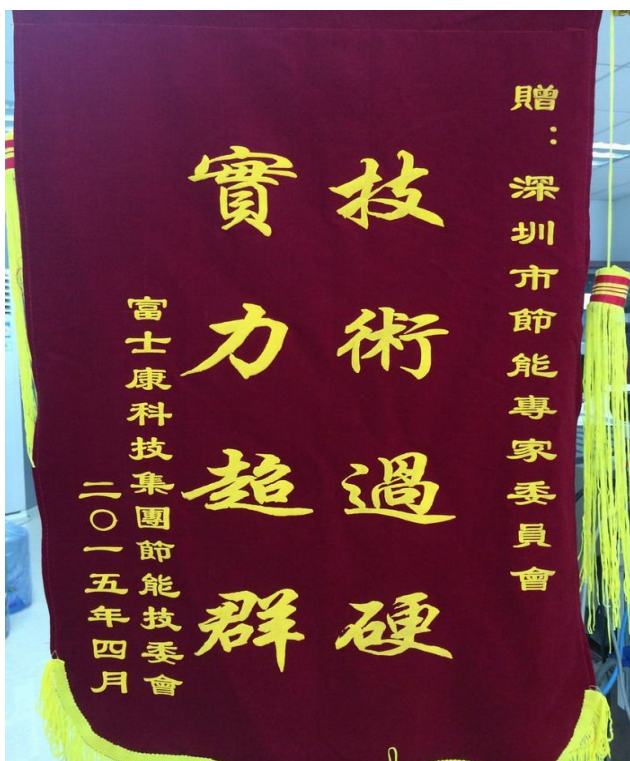 贈：深圳市節能專家委員會
技術過硬
實力超群
富士康科技集團節能技委會
二〇一五年四月